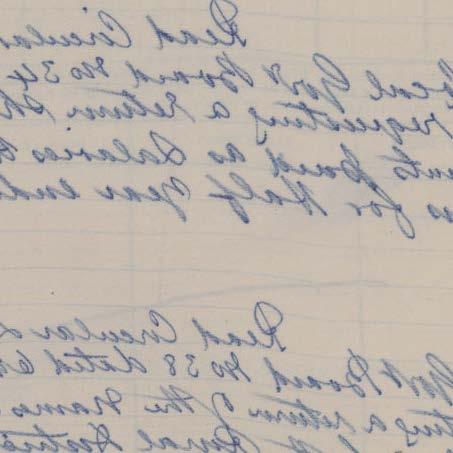 Read Circular
ocal Govt Board No 34
requesting a return sh
unts paid as Salaries t
s for Half Year ende
Read Circular L
Govt Board No 38 dated
ting a return of the Names
Rural District